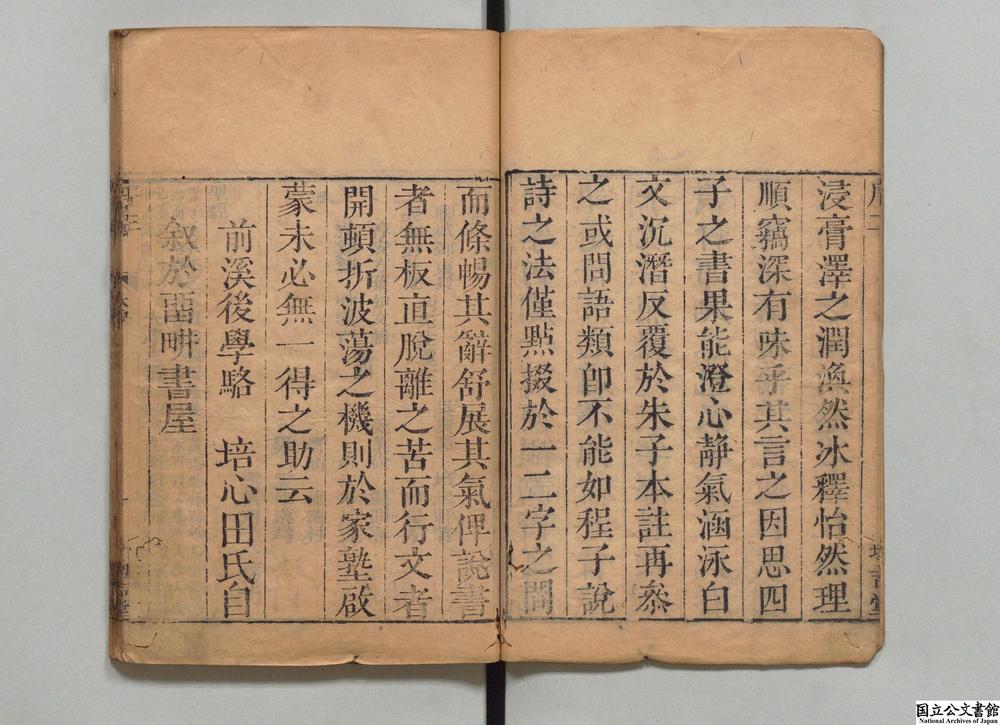 浸膏澤之潤渙然冰釋怡然理
順竊深有味乎其言之因思四
子之書果能澄心靜氣涵泳白
文沉潛反覆於朱子本註再叅
之或問語類卽不能如程子說
詩之法僅點掇於一二字之間
而條暢其辭舒展其氣俾說書
者無板直脫離之苦而行文者
開頓折波蕩之機則於家塾啟
蒙未必無一得之助云
前溪後學駱 培心田氏自
叙於畱畊書屋
国立公文書館
National Archives of Japan